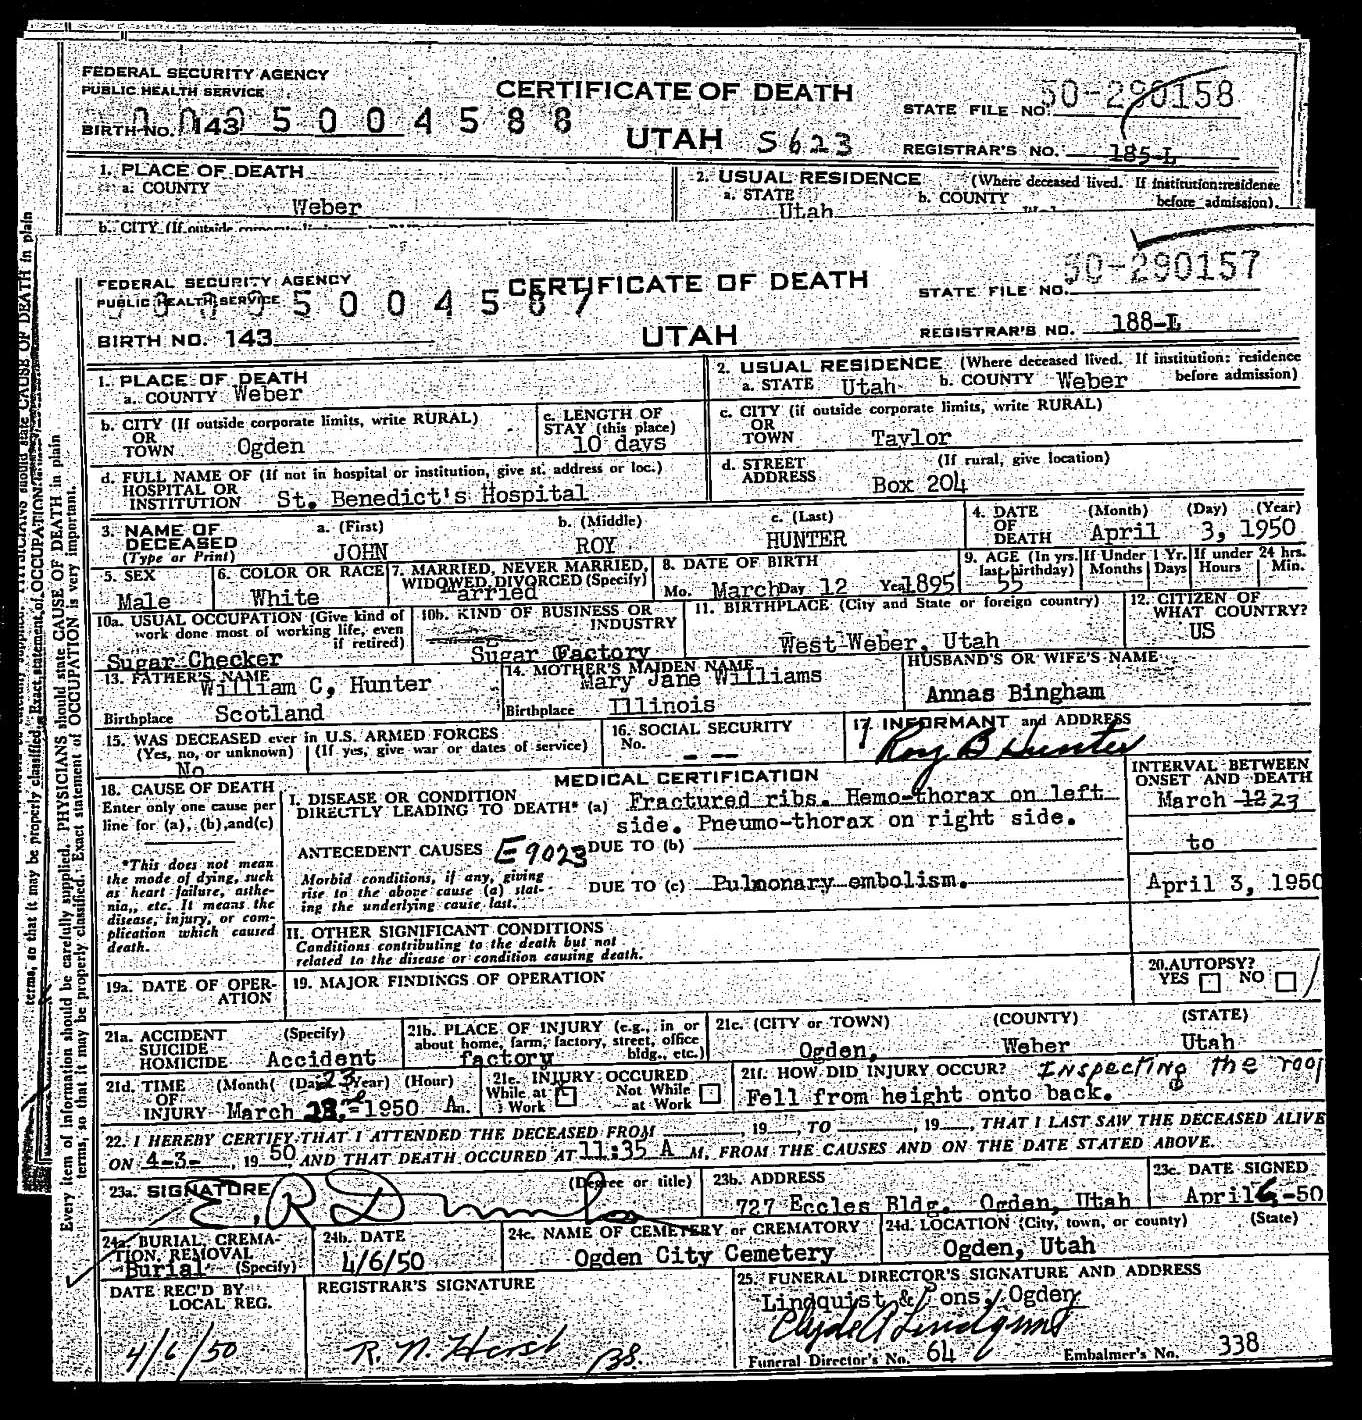 FEDERAL SECURITY AGENCY
PUBLIC HEALTH SERVICE
CERTIFICATE OF DEATH
STATE FILE NO. 50-290158
BIRTH NO. 143
0005004588
UTAH S623
REGISTRAR'S NO. 185-L
1. PLACE OF DEATH
a. COUNTY
Weber
2. USUAL RESIDENCE (Where deceased lived. If institution: residence before admission).
a. STATE Utah b. COUNTY
b. CITY (If outside corporate limits
FEDERAL SECURITY AGENCY
PUBLIC HEALTH SERVICE
CERTIFICATE OF DEATH
STATE FILE NO. 50-290157
0005004587
BIRTH NO. 143
UTAH
REGISTRAR'S NO. 188-L
1. PLACE OF DEATH
a. COUNTY Weber
2. USUAL RESIDENCE (Where deceased lived. If institution: residence before admission)
a. STATE Utah b. COUNTY Weber
b. CITY (If outside corporate limits, write RURAL)
OR
TOWN Ogden
c. LENGTH OF
STAY (this place)
10 days
c. CITY (if outside corporate limits, write RURAL)
OR
TOWN Taylor
d. FULL NAME OF (If not in hospital or institution, give st. address or loc.)
HOSPITAL OR
INSTITUTION St. Benedict's Hospital
d. STREET (If rural, give location)
ADDRESS Box 204
3. NAME OF
DECEASED
(Type or Print)
a. (First) JOHN
b. (Middle) ROY
c. (Last) HUNTER
4. DATE
OF
DEATH
(Month) (Day) (Year)
April 3, 1950
5. SEX
Male
6. COLOR OR RACE
White
7. MARRIED, NEVER MARRIED,
WIDOWED, DIVORCED (Specify)
arried
8. DATE OF BIRTH
Mo. March Day 12 Year 1895
9. AGE (In yrs. last birthday)
55
If Under 1 Yr.
Months Days
If under 24 hrs.
Hours Min.
10a. USUAL OCCUPATION (Give kind of
work done most of working life, even
if retired)
Sugar Checker
10b. KIND OF BUSINESS OR
INDUSTRY
Sugar Factory
11. BIRTHPLACE (City and State or foreign country)
West Weber, Utah
12. CITIZEN OF
WHAT COUNTRY?
US
13. FATHER'S NAME
William C, Hunter
Birthplace Scotland
14. MOTHER'S MAIDEN NAME
Mary Jane Williams
Birthplace Illinois
HUSBAND'S OR WIFE'S NAME
Annas Bingham
15. WAS DECEASED ever in U.S. ARMED FORCES
(Yes, no, or unknown) (If yes, give war or dates of service)
No
16. SOCIAL SECURITY
No.
17. INFORMANT and ADDRESS
Roy B Hunter
18. CAUSE OF DEATH
Enter only one cause per
line for (a), (b), and (c)
*This does not mean
the mode of dying, such
as heart failure, asthe-
nia, etc. It means the
disease, injury, or com-
plication which caused
death.
MEDICAL CERTIFICATION
I. DISEASE OR CONDITION
DIRECTLY LEADING TO DEATH* (a) Fractured ribs. Hemo-thorax on left
side. Pneumo-thorax on right side.
ANTECEDENT CAUSES E9023 DUE TO (b)
Morbid conditions, if any, giving
rise to the above cause (a) stat-
ing the underlying cause last.
DUE TO (c) Pulmonary embolism.
INTERVAL BETWEEN
ONSET AND DEATH
March 12 23
to
April 3, 1950
II. OTHER SIGNIFICANT CONDITIONS
Conditions contributing to the death but not
related to the disease or condition causing death.
19a. DATE OF OPER-
ATION
19. MAJOR FINDINGS OF OPERATION
20. AUTOPSY?
YES NO
21a. ACCIDENT (Specify)
SUICIDE
HOMICIDE Accident
21b. PLACE OF INJURY (e.g., in or
about home, farm, factory, street, office
bldg., etc.)
factory
21c. (CITY or TOWN) (COUNTY) (STATE)
Ogden, Weber Utah
21d. TIME (Month) (Day) (Year) (Hour)
OF
INJURY March 23 1950 A m.
21e. INJURY OCCURED
While at Work
Not While at Work
21f. HOW DID INJURY OCCUR? Inspecting the roof
Fell from height onto back.
22. I HEREBY CERTIFY THAT I ATTENDED THE DECEASED FROM , 19 TO , 19 , THAT I LAST SAW THE DECEASED ALIVE
ON 4-3- , 19 50, AND THAT DEATH OCCURED AT 11:35 A M, FROM THE CAUSES AND ON THE DATE STATED ABOVE.
23a. SIGNATURE (Degree or title)
E. R.
23b. ADDRESS
727 Eccles Bldg. Ogden, Utah
23c. DATE SIGNED
April 6-50
24a. BURIAL, CREMA-
TION, REMOVAL
Burial (Specify)
24b. DATE
4/6/50
24c. NAME OF CEMETERY or CREMATORY
Ogden City Cemetery
24d. LOCATION (City, town, or county) (State)
Ogden, Utah
DATE REC'D BY
LOCAL REG.
4/6/50
REGISTRAR'S SIGNATURE
R. N. Hirst
25. FUNERAL DIRECTOR'S SIGNATURE AND ADDRESS
Lindquist & Sons, Ogden
Clyde A Lindquist
Funeral Director's No. 64 Embalmer's No. 338
Every item of information should be carefully supplied. PHYSICIANS should state CAUSE OF DEATH in plain
terms, so that it may be properly classified. Exact statement of OCCUPATION is very important.